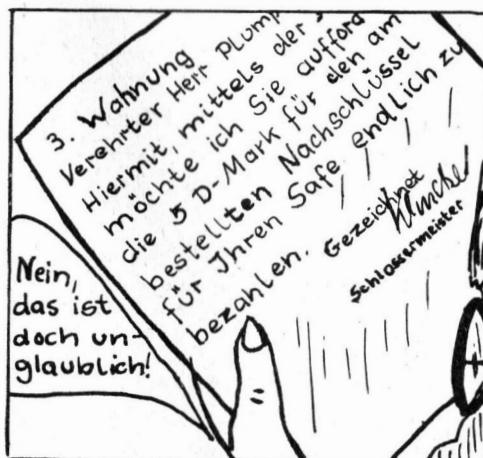 3. Wahnung
Verehrter Herr Plump
Hiermit, mittels der
möchte ich Sie aufford
die 5 D-Mark für den am
bestellten Nachschlüssel
für Ihren Safe endlich zu
bezahlen. Gezeichnet
Schlossermeister
Nein,
das ist
doch un-
glaublich!